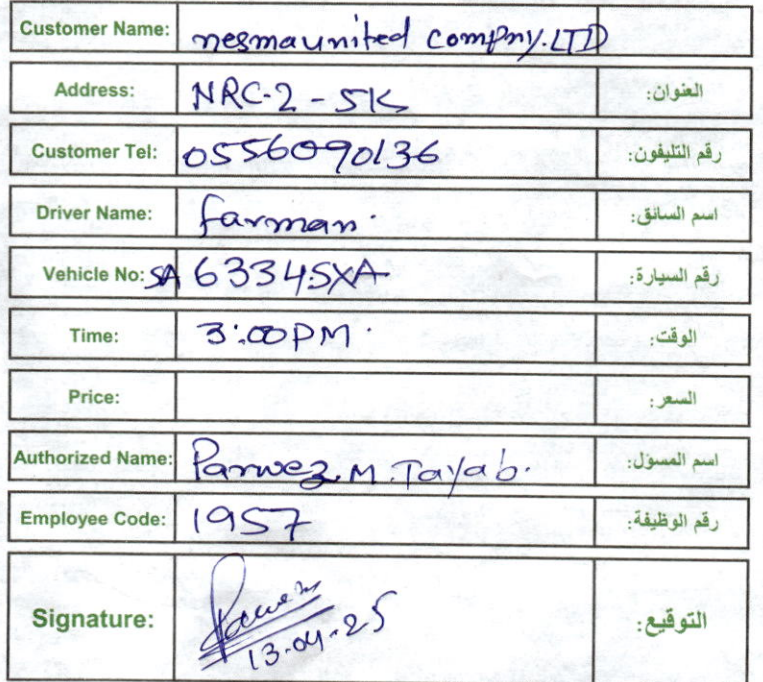 Customer Name: nesmaunited Company.LTD
Address: NRC-2-5K العنوان:
Customer Tel: 0556090136 رقم التليفون:
Driver Name: farman. اسم السائق:
Vehicle No: SA 6334SXA رقم السيارة:
Time: 3:00PM. الوقت:
Price: السعر:
Authorized Name: Parwez M. Tayab. اسم المسول:
Employee Code: 1957 رقم الوظيفة:
Signature: Parwez التوقيع:
13-04-25